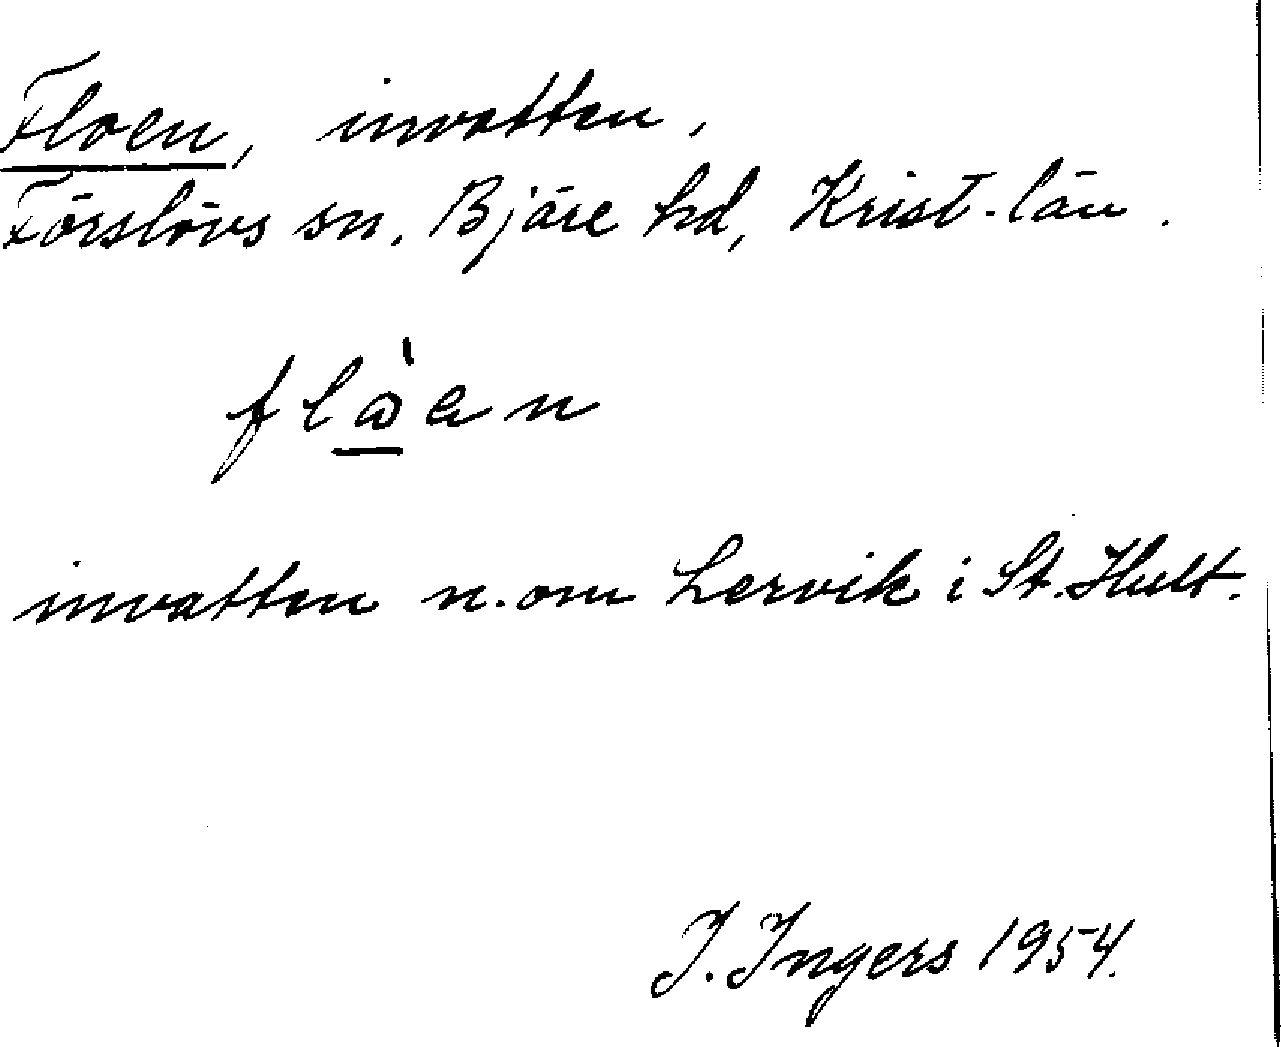 Floen, invatten,
Förslövs sn, Bjäre hd, Krist. län.
flå̀en
invatten n. om Lervik i St. Hult.
I. Ingers 1954.